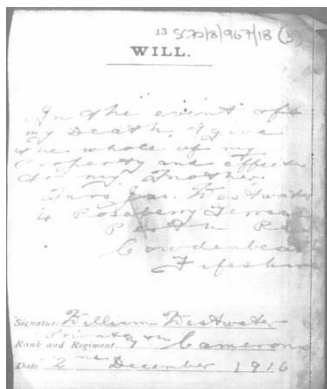 13 SC70/8/967/18 (3)
WILL.
In the event of
my Death, I give
the whole of my
Property and effects
to my Mother.
Mrs Jas. Westwater
4 Rosebery Terrace
Perth
Cowdenbeath
Fifeshire
Signature William Westwater
Rank and Regiment Private Camerons
Date 2nd December 1916